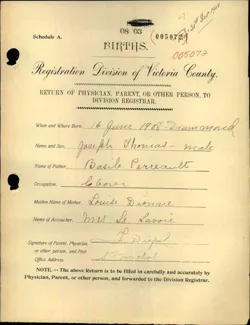 Schedule A.
08 03
005072
BIRTHS.
005072
Registration Division of Victoria County.
RETURN OF PHYSICIAN, PARENT, OR OTHER PERSON, TO
DIVISION REGISTRAR.
When and Where Born, 16 June 1908 Drummond
Name and Sex, Joseph Thomas - male
Name of Father, Basile Perreault
Occupation,
Maiden Name of Mother, Louise Dionne
Name of Accoucher, Mrs St Lavoie
Signature of Parent, Physician
or other person, and Post
Office Address
NOTE.—The above Return is to be filled in carefully and accurately by
Physician, Parent, or other person, and forwarded to the Division Registrar.